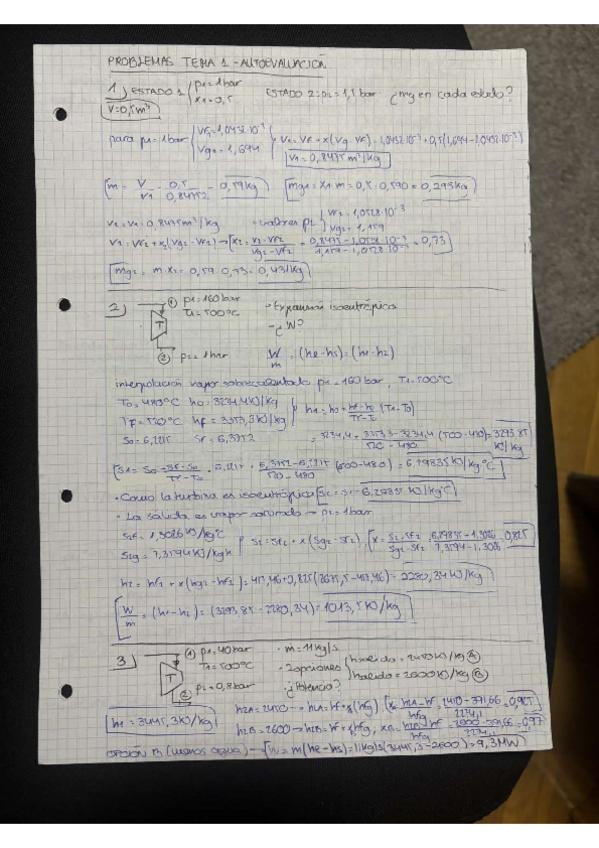 PROBLEMAS TEMA 1 - AUTOEVALUACIÓN
1) ESTADO 1 { p1 = 1 bar x1 = 0,5 ESTADO 2: p2 = 1,5 bar ¿mg en cada estado?
V = 0,5 m³
para p1 = 1 bar { vf1 = 1,0432·10⁻³ vg1 = 1,694 } v1 = vf + x(vg - vf) = 1,0432·10⁻³ + 0,5(1,694 - 1,0432·10⁻³)
v1 = 0,8475 m³/kg
m = V/v1 = 0,5/0,8475 = 0,59 kg mg1 = x1·m = 0,5·0,590 = 0,295 kg
v2 = v1 = 0,8475 m³/kg · valores p2 { vf2 = 1,0528·10⁻³ vg2 = 1,159
v2 = vf2 + x2(vg2 - vf2) → x2 = (v2 - vf2)/(vg2 - vf2) = (0,8475 - 1,0528·10⁻³)/(1,159 - 1,0528·10⁻³) = 0,73
mg2 = m·x2 = 0,59·0,73 = 0,431 kg
2) ① p1 = 160 bar · Expansión isoentrópica
T1 = 500ºC - ¿W?
T
② p2 = 1 bar W/m = (he - hs) = (h1 - h2)
interpolación vapor sobrecalentado p1 = 160 bar, T1 = 500ºC
T0 = 480ºC h0 = 3234,4 kJ/kg } h1 = h0 + (hf - h0)/(Tf - T0) (T1 - T0)
Tf = 520ºC hf = 3353,3 kJ/kg
S0 = 6,2215 Sf = 6,3752 = 3234,4 + (3353,3 - 3234,4)/(520 - 480) (500 - 480) = 3293,85 kJ/kg
S1 = S0 + (Sf - S0)/(Tf - T0) = 6,2215 + (6,3752 - 6,2215)/(520 - 480) (500 - 480) = 6,29835 kJ/kg ºC
· Como la turbina es isoentrópica S2 = S1 = 6,29835 kJ/kgºC
· La salida es vapor saturado → p2 = 1 bar
S2f = 1,3026 kJ/kgºC } S2 = Sf2 + x(Sg2 - Sf2) x = (S2 - Sf2)/(Sg2 - Sf2) = (6,29835 - 1,3026)/(7,3594 - 1,3026) = 0,825
S2g = 7,3594 kJ/kgK
h2 = hf2 + x(hg2 - hf2) = 417,46 + 0,825(2675,5 - 417,46) = 2280,34 kJ/kg
W/m = (h1 - h2) = (3293,85 - 2280,34) = 1013,5 kJ/kg
3) ① p1 = 40 bar · m = 11 kg/s
T1 = 500ºC · 2 opciones { hsalida = 2450 kJ/kg Ⓐ hsalida = 2600 kJ/kg Ⓑ
T
② p2 = 0,8 bar · ¿Potencia?
h1 = 3445,3 kJ/kg h2A = 2450 → h2A = hf + x(hfg) xA = (h2A - hf)/hfg = (2450 - 391,66)/2274,1 = 0,905
h2B = 2600 → h2B = hf + x hfg, xB = (h2B - hf)/hfg = (2600 - 391,66)/2274,1 = 0,97
OPCIÓN B (menos agua) → W = m(he - hs) = 11 kg/s (3445,3 - 2600) = 9,3 MW